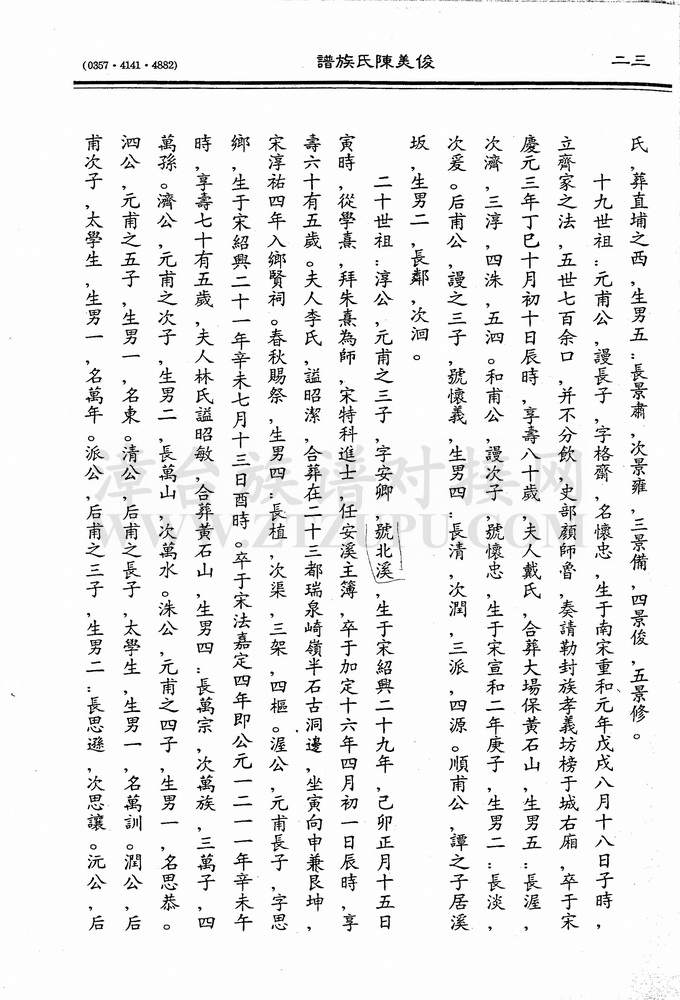 (0357・4141・4882)
俊美陳氏族譜
二三
氏,葬直埔之西,生男五:長景肅,次景雍,三景備,四景俊,五景修。
十九世祖:元甫公,謾長子,字格齋,名懷忠,生于南宋重和元年戊戌八月十八日子時,
立齊家之法,五世七百余口,并不分飲,史部顔師魯,奏請勅封族孝義坊榜于城右廂,卒于宋
慶元三年丁巳十月初十日辰時,享壽八十歲,夫人戴氏,合葬大場保黃石山,生男五:長渥,
次濟,三淳,四洙,五泗。和甫公,謾次子,號懷忠,生于宋宣和二年庚子,生男二:長淡,
次爰。后甫公,謾之三子,號懷義,生男四:長清,次潤,三派,四源。順甫公,譚之子居溪
坂,生男二,長鄰,次洄。
二十世祖:淳公,元甫之三子,字安卿,號北溪,生于宋紹興二十九年,己卯正月十五日
寅時,從學熹,拜朱熹為師,宋特科進士,任安溪主簿,卒于加定十六年四月初一日辰時,享
壽六十有五歲。夫人李氏,謚昭潔,合葬在二十三都瑞泉崎嶺半石古洞邊,坐寅向申兼艮坤,
宋淳祐四年入鄉賢祠。春秋賜祭,生男四:長植,次渠,三架,四樞。渥公,元甫長子,字思
鄉,生于宋紹興二十一年辛未七月十三日酉時。卒于宋法嘉定四年即公元一二一一年辛未午
時,享壽七十有五歲,夫人林氏謚昭敏,合葬黃石山,生男四:長萬宗,次萬族,三萬子,四
萬孫。濟公,元甫之次子,生男二,長萬山,次萬水。洙公,元甫之四子,生男一,名思恭。
泗公,元甫之五子,生男一,名東。清公,后甫之長子,太學生,生男一,名萬訓。潤公,后
甫次子,太學生,生男一,名萬年。派公,后甫之三子,生男二:長思遜,次思讓。沅公,后
漳台族谱对接网
WWW.ZTZUPU.COM